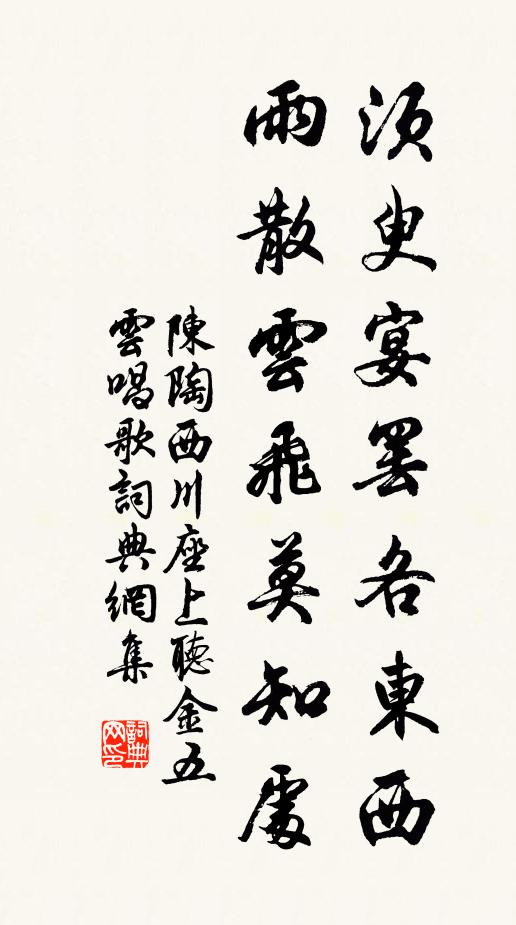 須臾宴罷各東西
雨散雲飛莫知處
陳陶西川座上聽金五
雲唱歌詞典網集
詞典網印